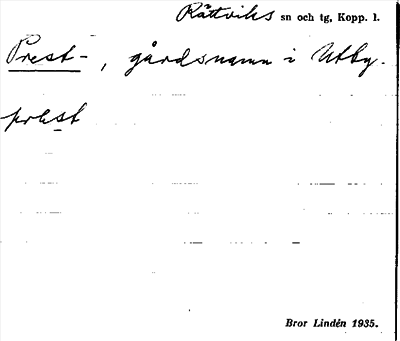 Rättviks sn och tg, Kopp. l.
Prest-, gårdsnamn i Utby.
prest
Bror Lindén 1935.